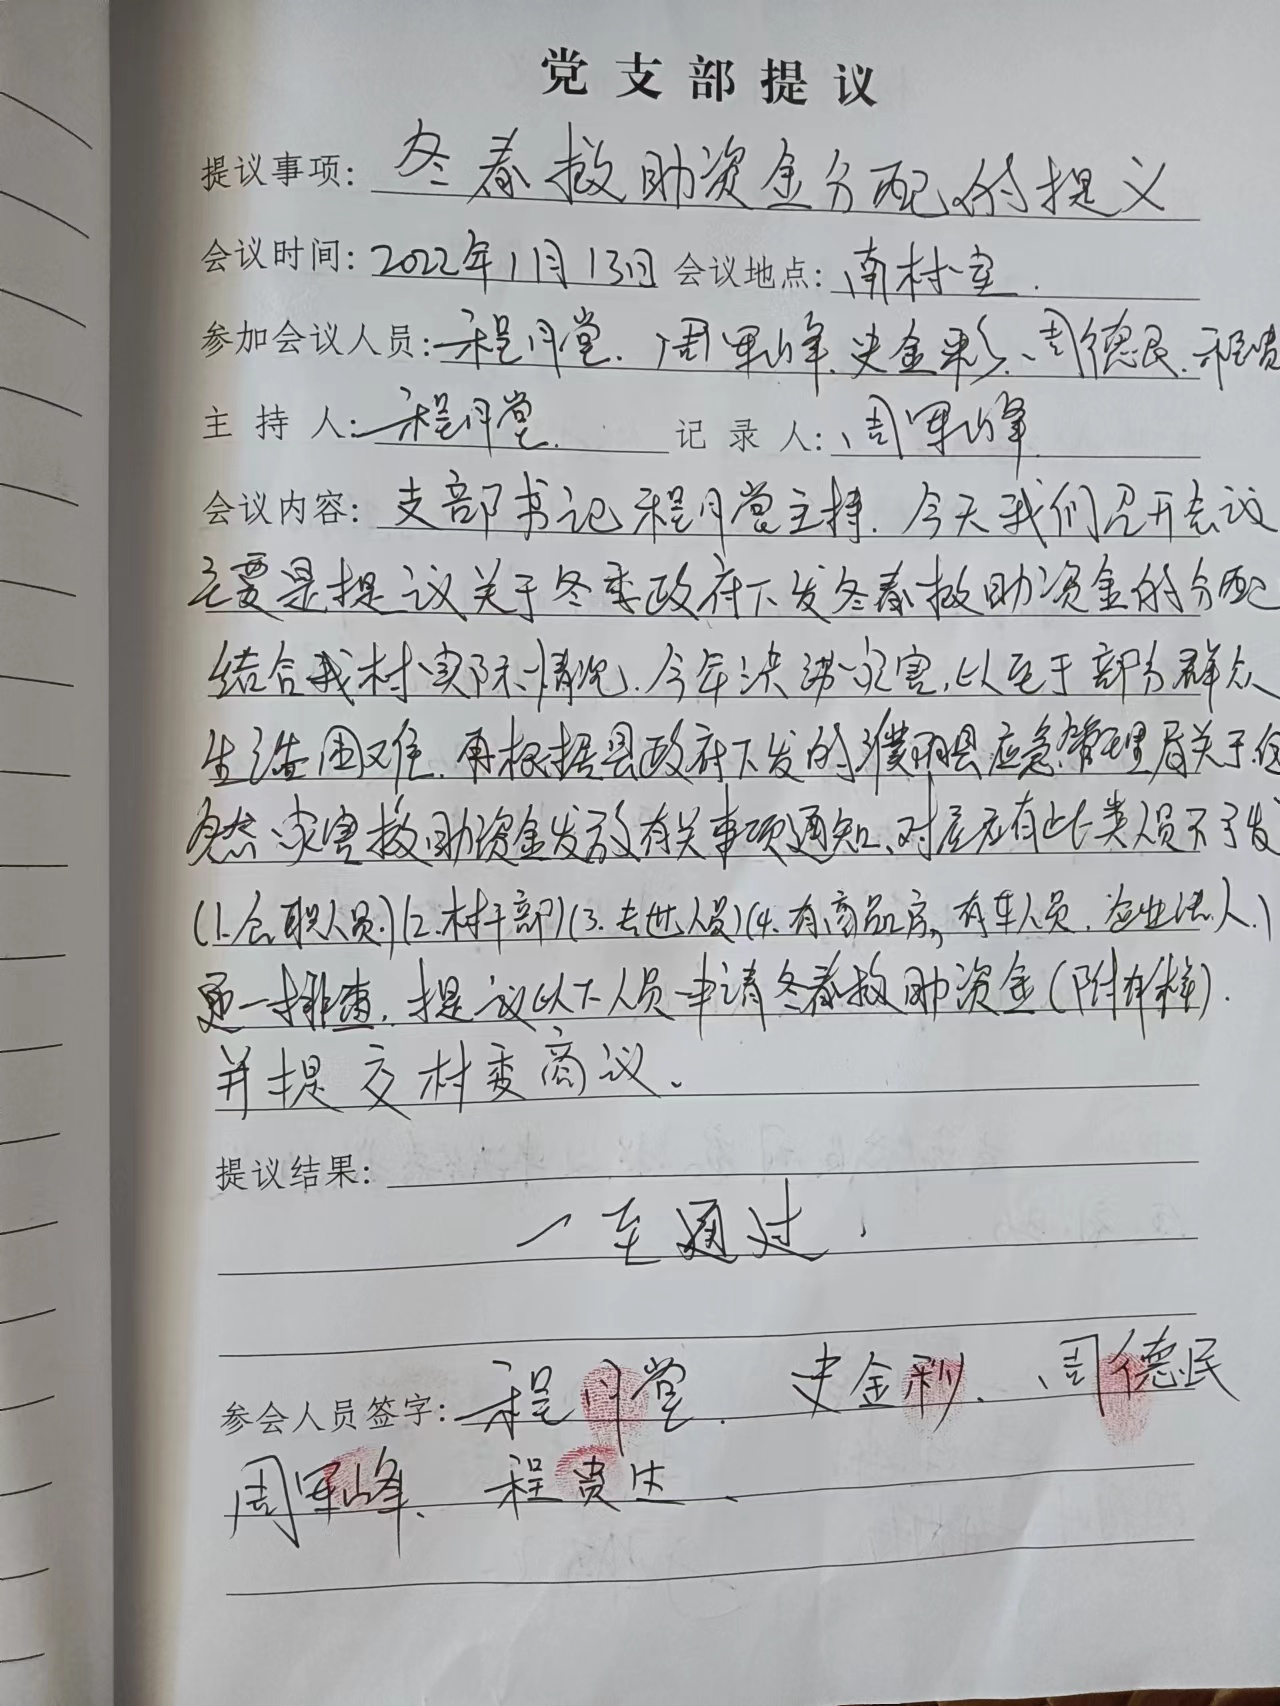 党支部提议
提议事项：冬春救助资金分配的提义
会议时间：2022年11月13日 会议地点：南村室.
参加会议人员：程月堂、周军峰、史金彩、周德民、程贵
主持人：程月堂. 记录人：周军峰
会议内容：支部书记程月堂主持.今天我们召开会议
主要是提议关于冬季政府下发冬春救助资金的分配
结合我村实际情况.今年洪涝灾害,以至于部分群众
生活困难.再根据县政府下发的濮阳县应急管理局关于
自然灾害救助资金发放有关事项通知、对应有此类人员不予发
(1.公职人员)(2.村干部)(3.去世人员)(4.有商品房,有车人员.企业法人.)
逐一排查,提议以下人员申请冬春救助资金(附有样).
并提交村委商议.
提议结果：
一至通过.
参会人员签字：程月堂. 史金彩、周德民
周军峰、程贵达、